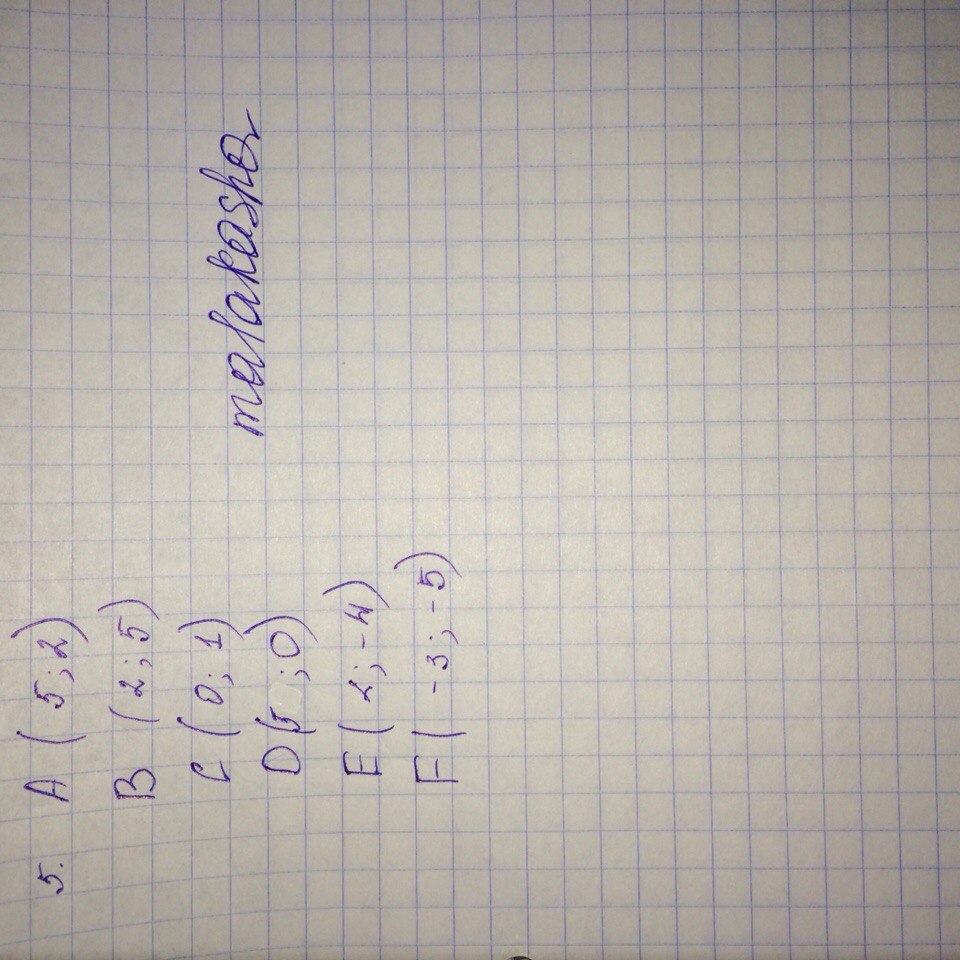 5. A ( 5; 2)
B ( 2; 5)
C ( 0; 1)
D(5 ;0)
E( 2; -4)
F( -3; -5)
malakasha